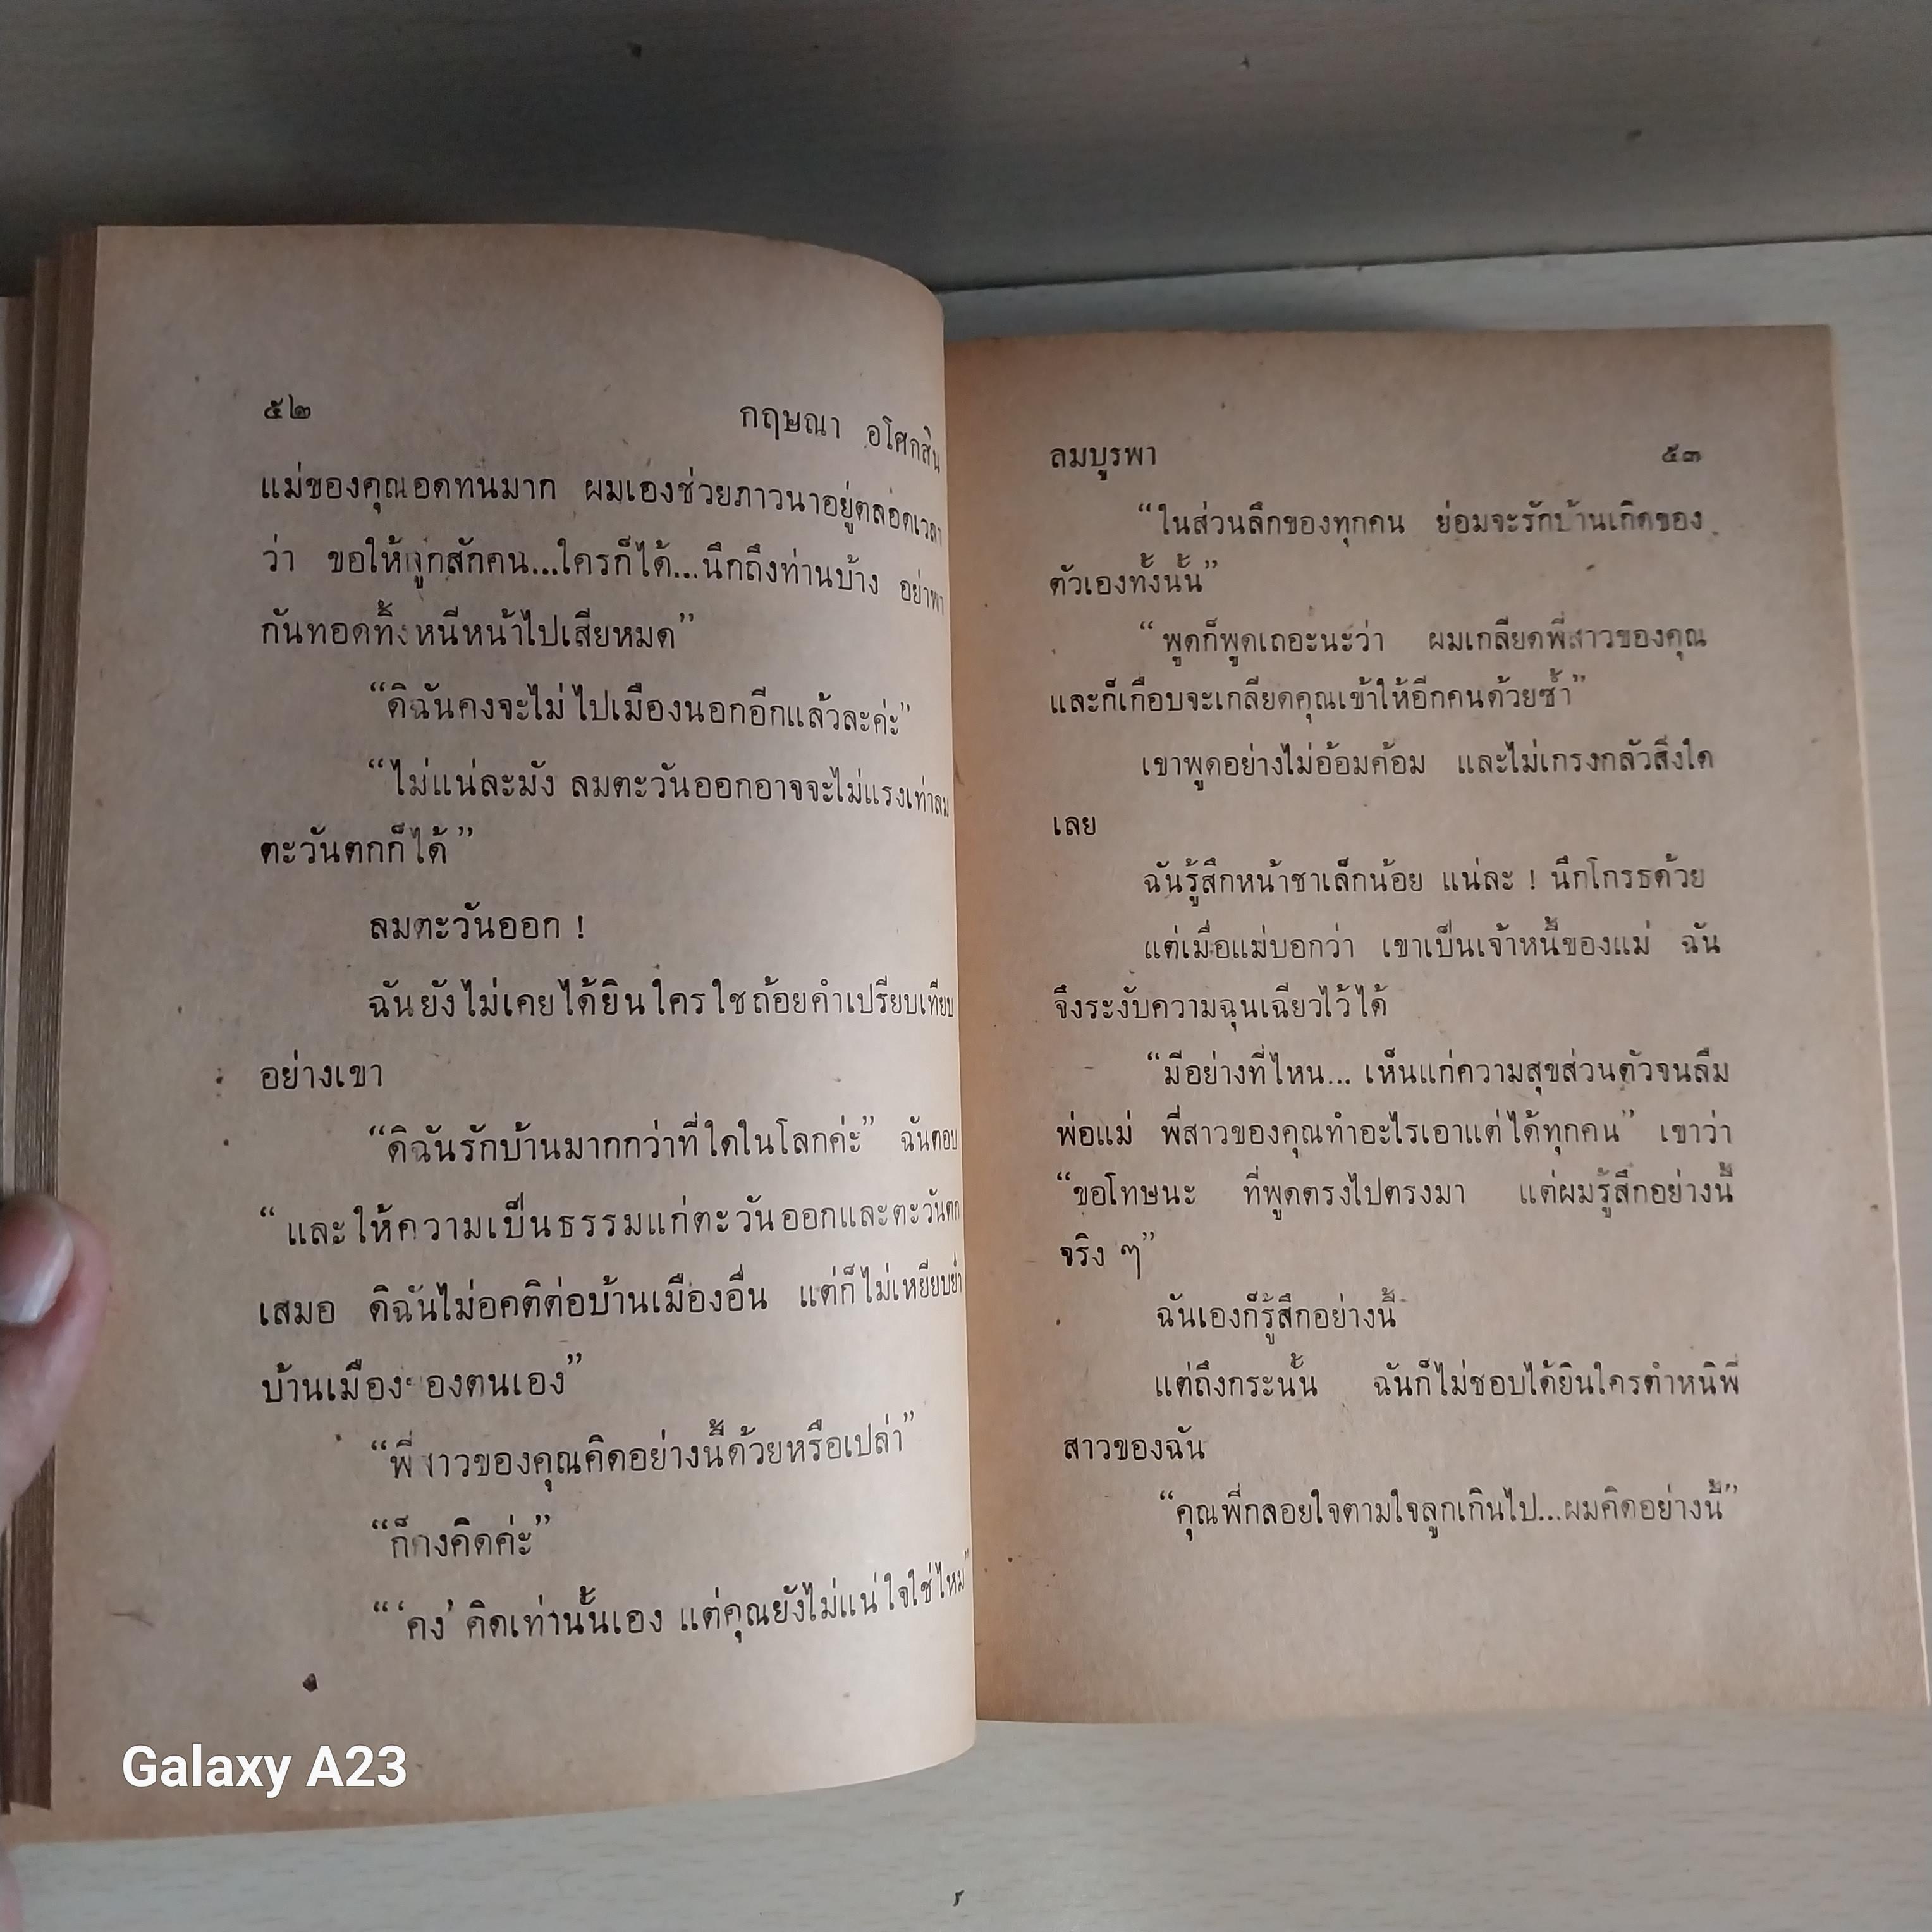 ๕๒ กฤษณา อโศกสิน
แม่ของคุณอดทนมาก ผมเองช่วยภาวนาอยู่ตลอดเวลา
ว่า ขอให้ลูกสักคน...ใครก็ได้...นึกถึงท่านบ้าง อย่าพา
กันทอดทิ้งหนีหน้าไปเสียหมด”
“ดิฉันคงจะไม่ไปเมืองนอกอีกแล้วละค่ะ”
“ไม่แน่ละมัง ลมตะวันออกอาจจะไม่แรงเท่าลม
ตะวันตกก็ได้”
ลมตะวันออก !
ฉันยังไม่เคยได้ยินใครใชถ้อยคำเปรียบเทียบ
อย่างเขา
“ดิฉันรักบ้านมากกว่าที่ใดในโลกค่ะ” ฉันตอบ
“และให้ความเป็นธรรมแก่ตะวันออกและตะวันตก
เสมอ ดิฉันไม่อคติต่อบ้านเมืองอื่น แต่ก็ไม่เหยียบย่ำ
บ้านเมืองของตนเอง”
“พี่สาวของคุณคิดอย่างนี้ด้วยหรือเปล่า”
“ก็คงคิดค่ะ”
“ ‘คง’ คิดเท่านั้นเอง แต่คุณยังไม่แน่ใจใช่ไหม”
ลมบูรพา ๕๓
“ในส่วนลึกของทุกคน ย่อมจะรักบ้านเกิดของ
ตัวเองทั้งนั้น”
“พูดก็พูดเถอะนะว่า ผมเกลียดพี่สาวของคุณ
และก็เกือบจะเกลียดคุณเข้าให้อีกคนด้วยซ้ำ”
เขาพูดอย่างไม่อ้อมค้อม และไม่เกรงกลัวสิ่งใด
เลย
ฉันรู้สึกหน้าชาเล็กน้อย แน่ละ ! นึกโกรธด้วย
แต่เมื่อแม่บอกว่า เขาเป็นเจ้าหนี้ของแม่ ฉัน
จึงระงับความฉุนเฉียวไว้ได้
“มีอย่างที่ไหน... เห็นแก่ความสุขส่วนตัวจนลืม
พ่อแม่ พี่สาวของคุณทำอะไรเอาแต่ได้ทุกคน” เขาว่า
“ขอโทษนะ ที่พูดตรงไปตรงมา แต่ผมรู้สึกอย่างนี้
จริง ๆ”
ฉันเองก็รู้สึกอย่างนี้
แต่ถึงกระนั้น ฉันก็ไม่ชอบได้ยินใครตำหนิพี่
สาวของฉัน
“คุณพี่กลอยใจตามใจลูกเกินไป...ผมคิดอย่างนี้”
Galaxy A23